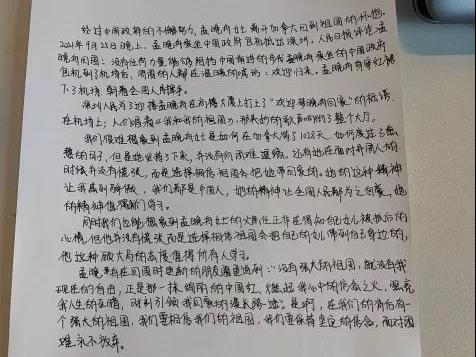 经过中国政府的不懈努力，孟晚舟女士离开加拿大回到祖国的怀抱。
2021年9月25日晚上，孟晚舟乘坐中国政府包机抵达深圳。人民日报评论孟
晚舟回国：没有任何力量能够阻挡中国前进的步伐 孟晚舟乘坐的中国政府
包机到了机场后，周围的人都在温暖的高喊：欢迎归来。孟晚舟身穿红裙
下了机场，朝着全国人民挥手。
深圳人民为了迎接孟晚舟在高楼大厦上打上了“欢迎孟晚舟回家”的标语
在机场上；人们唱着《我和我的祖国》，那美妙的歌声响彻了整个大厅。
我们很难想象到孟晚舟女士是如何在加拿大待了1028天，如何度过了
的日子，但是她坚持了下来，并没有向困难退缩。还有她在面对外国人的
时候并没有慌张，而是选择相信祖国会把她带回家的。她的这种精神
让我感到骄傲，我们都是中国人，她的精神让全国人民都为之自豪，她
的精神值得我们学习。
同时我们也能想象到孟晚舟女士的父亲任正非在得知自己女儿被抓后的
心情，但他并没有慌张而是选择相信祖国会把自己的女儿带到自己身边的，
他这种顾大局的高度值得所有人学习。
孟晚舟在回国时更新的朋友圈里说到：“没有强大的祖国，就没有我
现在的自由，正是那一抹绚丽的中国红，燃起我心中的信念之火，照亮
我人生的至暗，时刻引领我回家的漫长路途。是啊，在我们的背后有一
个强大的祖国，我们要相信我们的祖国，我们要保持坚定的信念，面对困
难永不放弃。